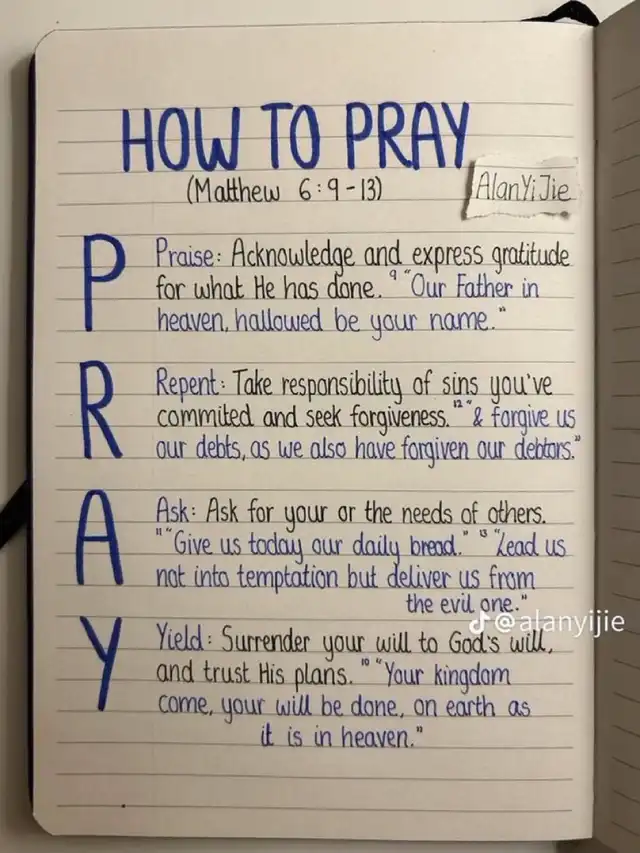 HOW TO PRAY
(Matthew 6:9-13)
AlanYiJie
P
Praise: Acknowledge and express gratitude
for what He has done. ⁹ "Our Father in
heaven, hallowed be your name."
R
Repent: Take responsibility of sins you've
commited and seek forgiveness. ¹² "& forgive us
our debts, as we also have forgiven our debtors."
A
Ask: Ask for your or the needs of others.
¹¹ "Give us today our daily bread." ¹³ "Lead us
not into temptation but deliver us from
the evil one."
@alanyijie
Y
Yield: Surrender your will to God's will,
and trust His plans. ¹⁰ "Your kingdom
come, your will be done, on earth as
it is in heaven."